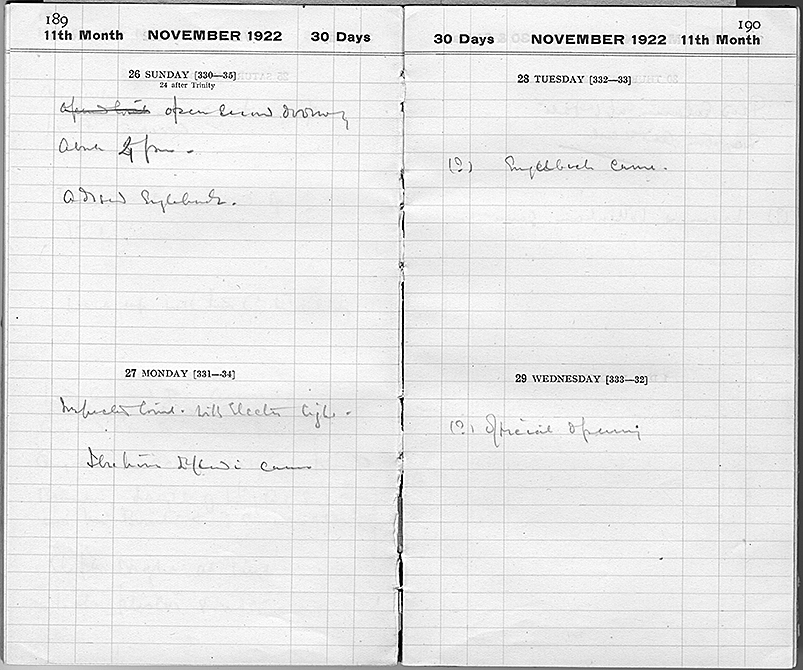 189
11th Month NOVEMBER 1922 30 Days
26 SUNDAY [330—35]
24 after Trinity
open second doorway
About 2 pm.
Advised Englebach.
27 MONDAY [331—34]
Inspected tomb. with Electric light.
Ibrahim Effendi came
190
30 Days NOVEMBER 1922 11th Month
28 TUESDAY [332—33]
(?) Englebach came.
29 WEDNESDAY [333—32]
(?) Official opening